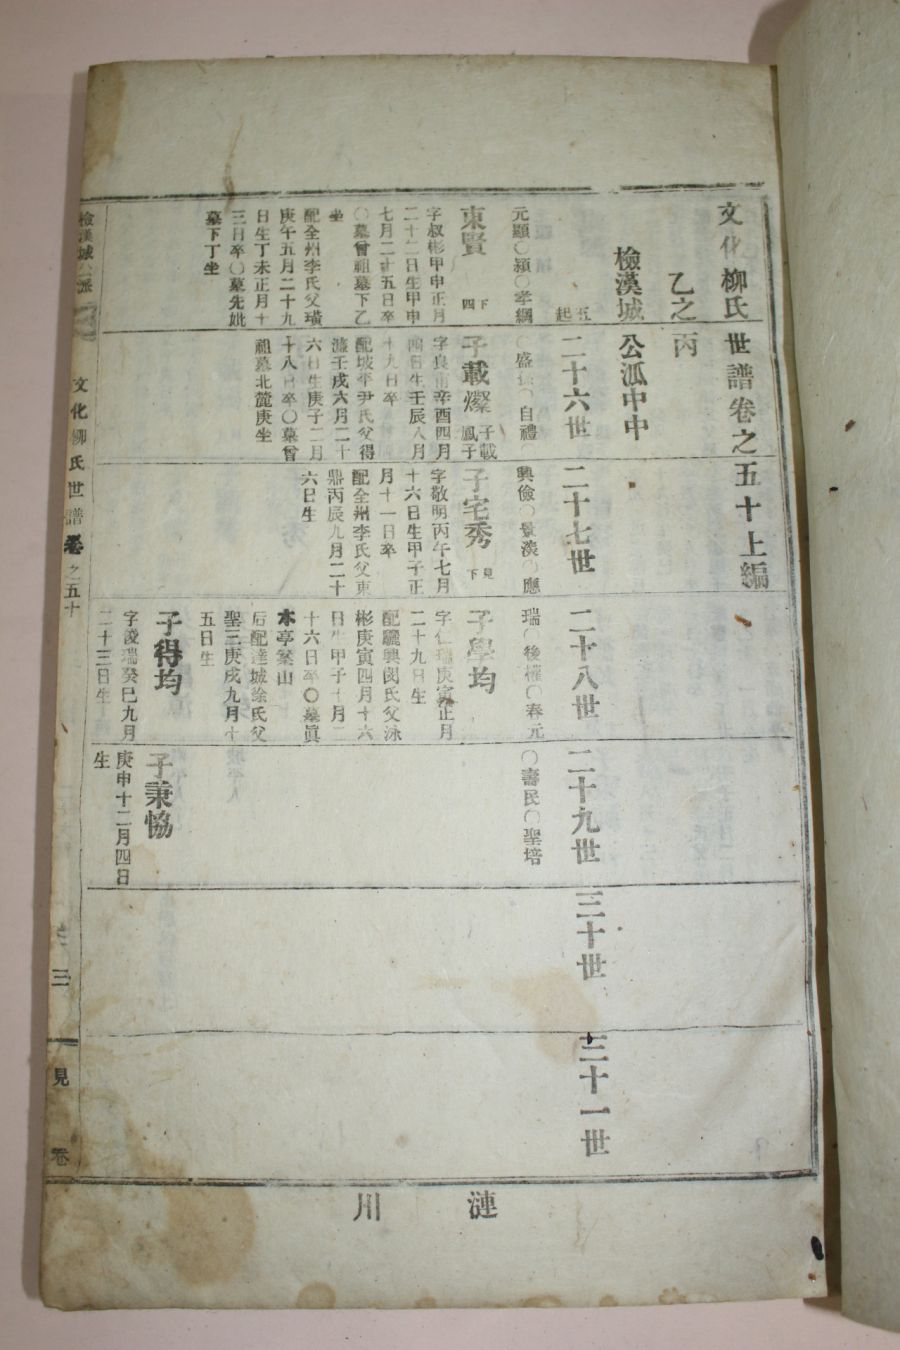 文化柳氏世譜卷之五十上編
乙之丙
檢漢城公派中中
五
起
二十六世
二十七世
二十八世
二十九世
三十世
三十一世
元顯○潁○孝綱
○盛○自禮○
興儉○景漢○應
瑞○後權○春元
○壽民○聖培
東賢
下
四
字叔彬甲申正月
二十二日生甲申
七月二十五日卒
○墓曾祖墓下乙
坐
配全州李氏父璜
庚午五月二十九
日生丁未正月十
三日卒○墓先妣
墓下丁坐
子載燦
子載
鳳子
字良甫辛酉四月
四日生壬辰八月
十九日卒
配坡平尹氏父得
濂壬戌六月二十
六日生庚子二月
十八日卒○墓曾
祖墓北麓庚坐
子宅秀
見
下
字敬明丙午七月
十六日生甲子正
月十一日卒
配全州李氏父東
鼎丙辰九月二十
六日生
子學均
字仁瑞庚寅正月
二十九日生
配驪興閔氏父泳
彬庚寅四月十六
日生甲子十月二
十六日卒○墓眞
木亭案山
后配達城徐氏父
聖三庚戌九月十
五日生
子得均
字詨瑞癸巳九月
二十三日生
子秉恊
庚申十二月四日
生
檢漢城公派
文化柳氏世譜卷之五十
三
見
卷
漣川